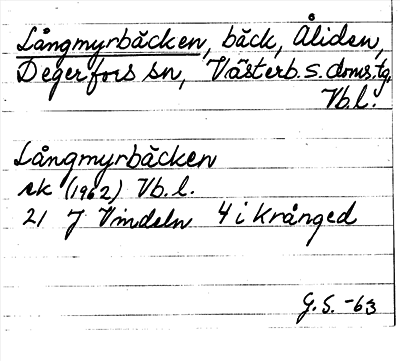 Långmyrbäcken, bäck, Åliden,
Degerfors sn, Västerb. s. doms. tg.
Vb l.
Långmyrbäcken
ek (1962) Vb. l.
21 J Vindeln 4 i Krånged
G. S. -63